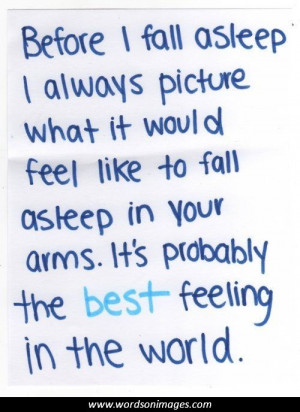 Before I fall asleep
I always picture
what it would
feel like to fall
asleep in your
arms. It's probably
the best feeling
in the world.
www.wordsonimages.com